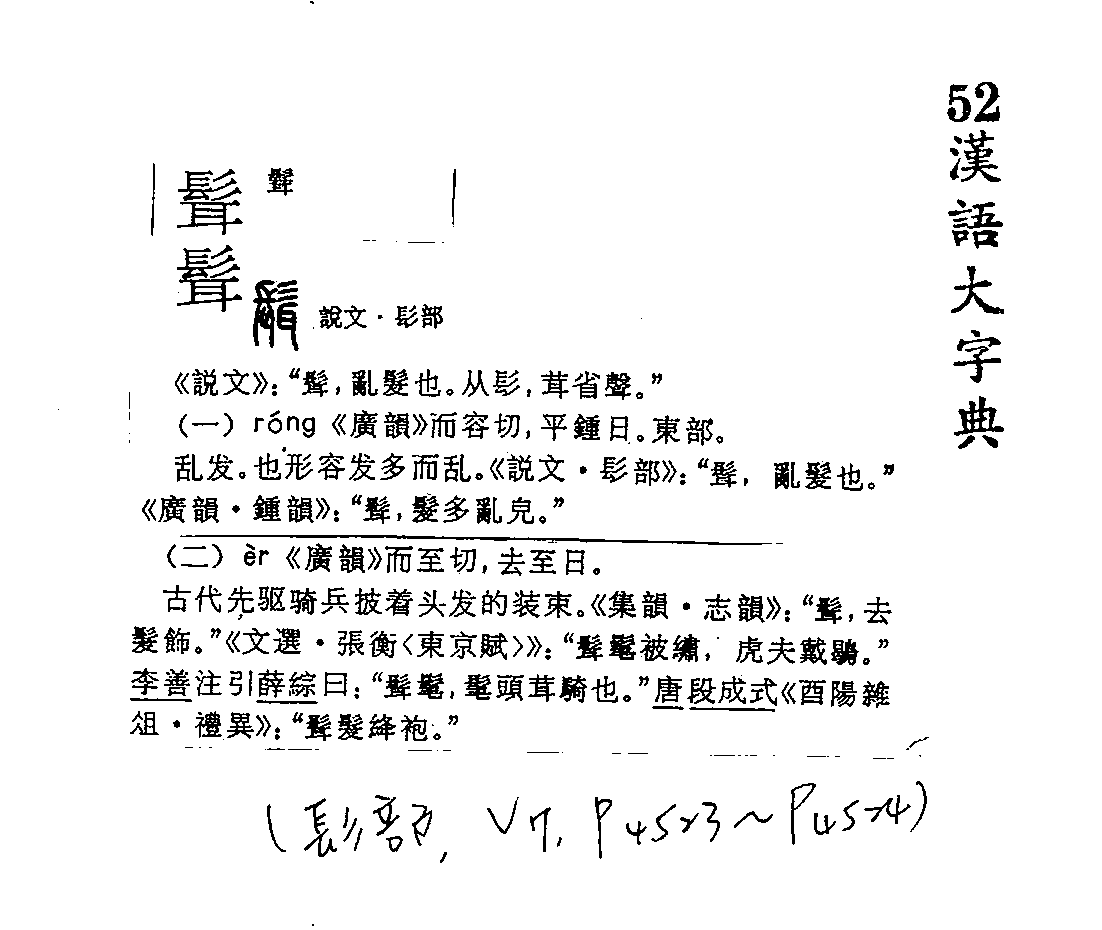 52漢語大字典
髶 髶
髶
說文·髟部
《説文》：“髶，亂髮也。从髟，茸省聲。”
（一）róng《廣韻》而容切，平鍾日。東部。
乱发。也形容发多而乱。《説文·髟部》：“髶，亂髮也。”
《廣韻·鍾韻》：“髶，髮多亂皃。”
（二）èr《廣韻》而至切，去至日。
古代先驱骑兵披着头发的装束。《集韻·志韻》：“髶，去
髮飾。”《文選·張衡〈東京賦〉》：“髶髦被繡，虎夫戴鶡。”
李善注引薛綜曰：“髶髦，髦頭茸騎也。”唐段成式《酉陽雜
俎·禮異》：“髶髮絳袍。”
(髟部, V7, P4523~P4524)